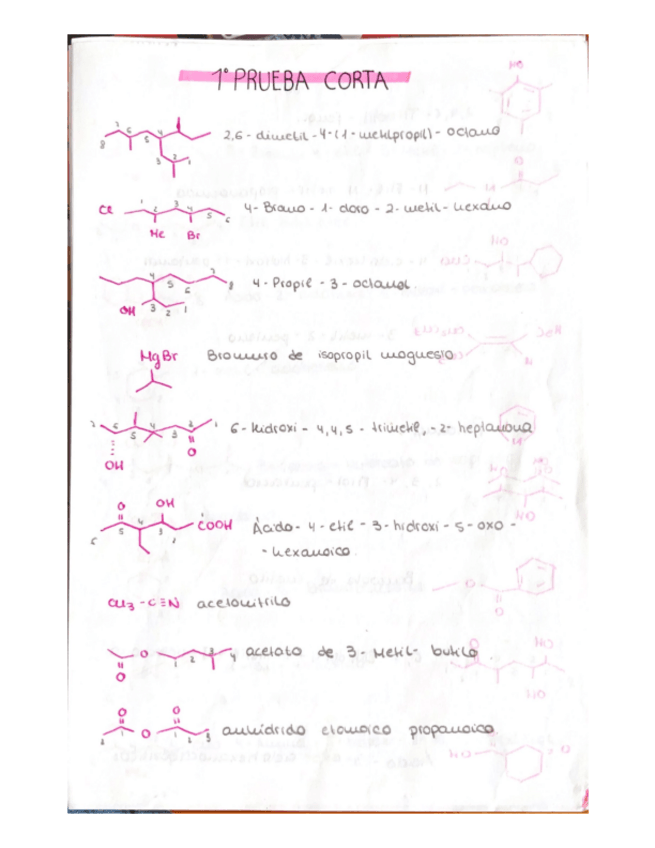 1º PRUEBA CORTA
2,6 - dimetil - 4 - (1 - metilpropil) - octano
Cl 4 - Bromo - 1 - cloro - 2 - metil - hexano
Me Br
4 - Propil - 3 - octanol
OH
MgBr Bromuro de isopropil magnesio
6 - hidroxi - 4,4,5 - trimetil, - 2 - heptanona
O
OH
O OH
COOH Ácido - 4 - etil - 3 - hidroxi - 5 - oxo -
- hexanoico.
CH3 - C≡N acetonitrilo
O acetato de 3 - Metil - butilo
O
O O
O anhidrido etanoico propanoico